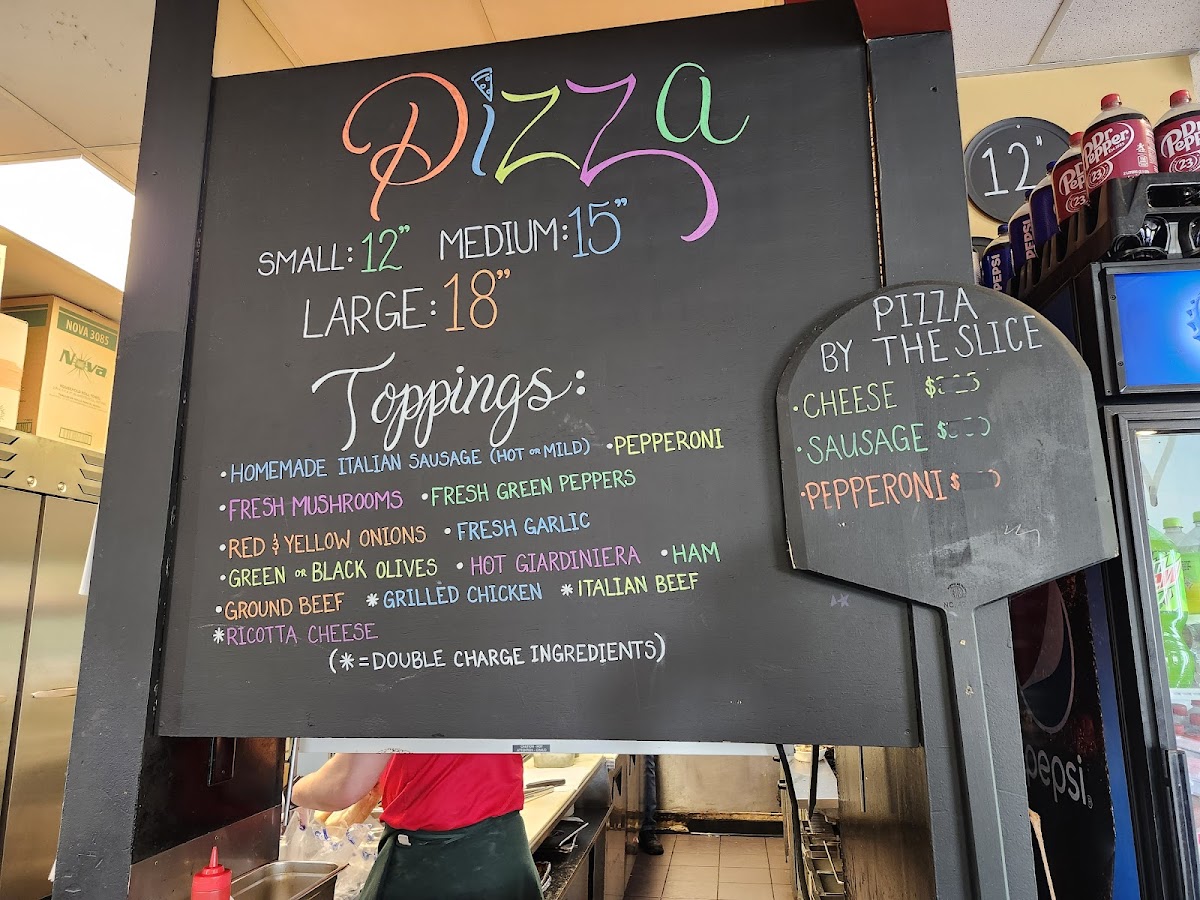 Pizza
SMALL: 12" MEDIUM: 15"
LARGE: 18"
Toppings:
•HOMEMADE ITALIAN SAUSAGE (HOT OR MILD) •PEPPERONI
•FRESH MUSHROOMS •FRESH GREEN PEPPERS
•RED & YELLOW ONIONS •FRESH GARLIC
•GREEN OR BLACK OLIVES •HOT GIARDINIERA •HAM
•GROUND BEEF *GRILLED CHICKEN *ITALIAN BEEF
*RICOTTA CHEESE
(*=DOUBLE CHARGE INGREDIENTS)
PIZZA
BY THE SLICE
•CHEESE $
•SAUSAGE $
•PEPPERONI $
12"
Dr Pepper
23
Dr Pepper
23
PEPSI
PEPSI
pepsi
NOVA 3085
Nova